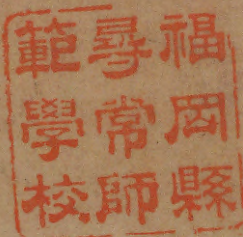 福岡縣
尋常師
範學校